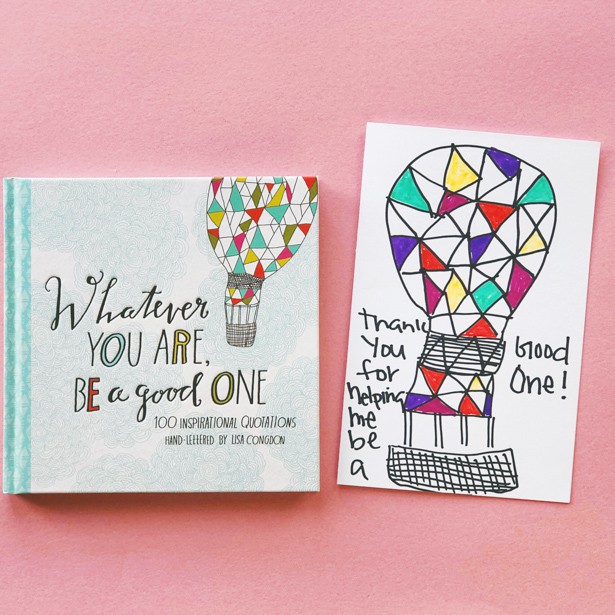 Whatever
YOU ARE,
BE a good ONE
100 INSPIRATIONAL QUOTATIONS
HAND-LETTERED BY LISA CONGDON
Thank
You
for
helping
me
be
a
Good
One!